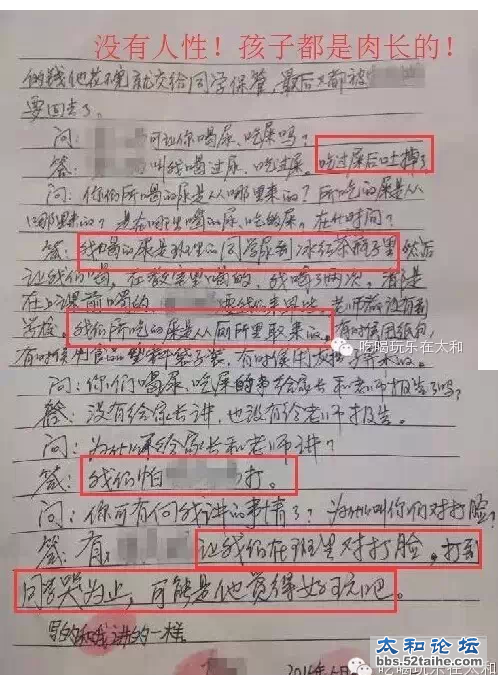 没有人性！孩子都是肉长的！
的钱他在不完就交给同学保管，最后又都被
要回去了。
问： 可让你喝尿、吃屎吗？
答： 叫我喝过尿、吃过屎。吃过屎后吐掉了
问：你们所喝的尿是从哪里来的？所吃的屎是从
哪里来的？是在哪里喝的尿、吃的屎，在什时间？
答：我喝的尿是班里的同学尿到冰红茶瓶子里 然后
让我们喝，在教室里喝的，我喝了两次。
在上课前喝的 老师都没有到
学校。我们所吃的屎是从厕所里取来的。有时候用纸包，
有时候用食品的塑料袋子装，有时候用
吃喝玩乐在太和
问：你们喝尿、吃屎的事给家长和老师报告了吗？
答：没有给家长讲，也没有给老师报告。
问：为什么不给家长和老师讲？
答：我们怕 打。
问：你可有何我讲的事情了？为他叫你们对打脸？
答：有， 让我们在班里对打脸，打到
同学哭为止，可能是他觉得好玩吧。
写的和我讲的一样。
吃喝玩乐在太和
太和论坛
bbs.52taihe.com